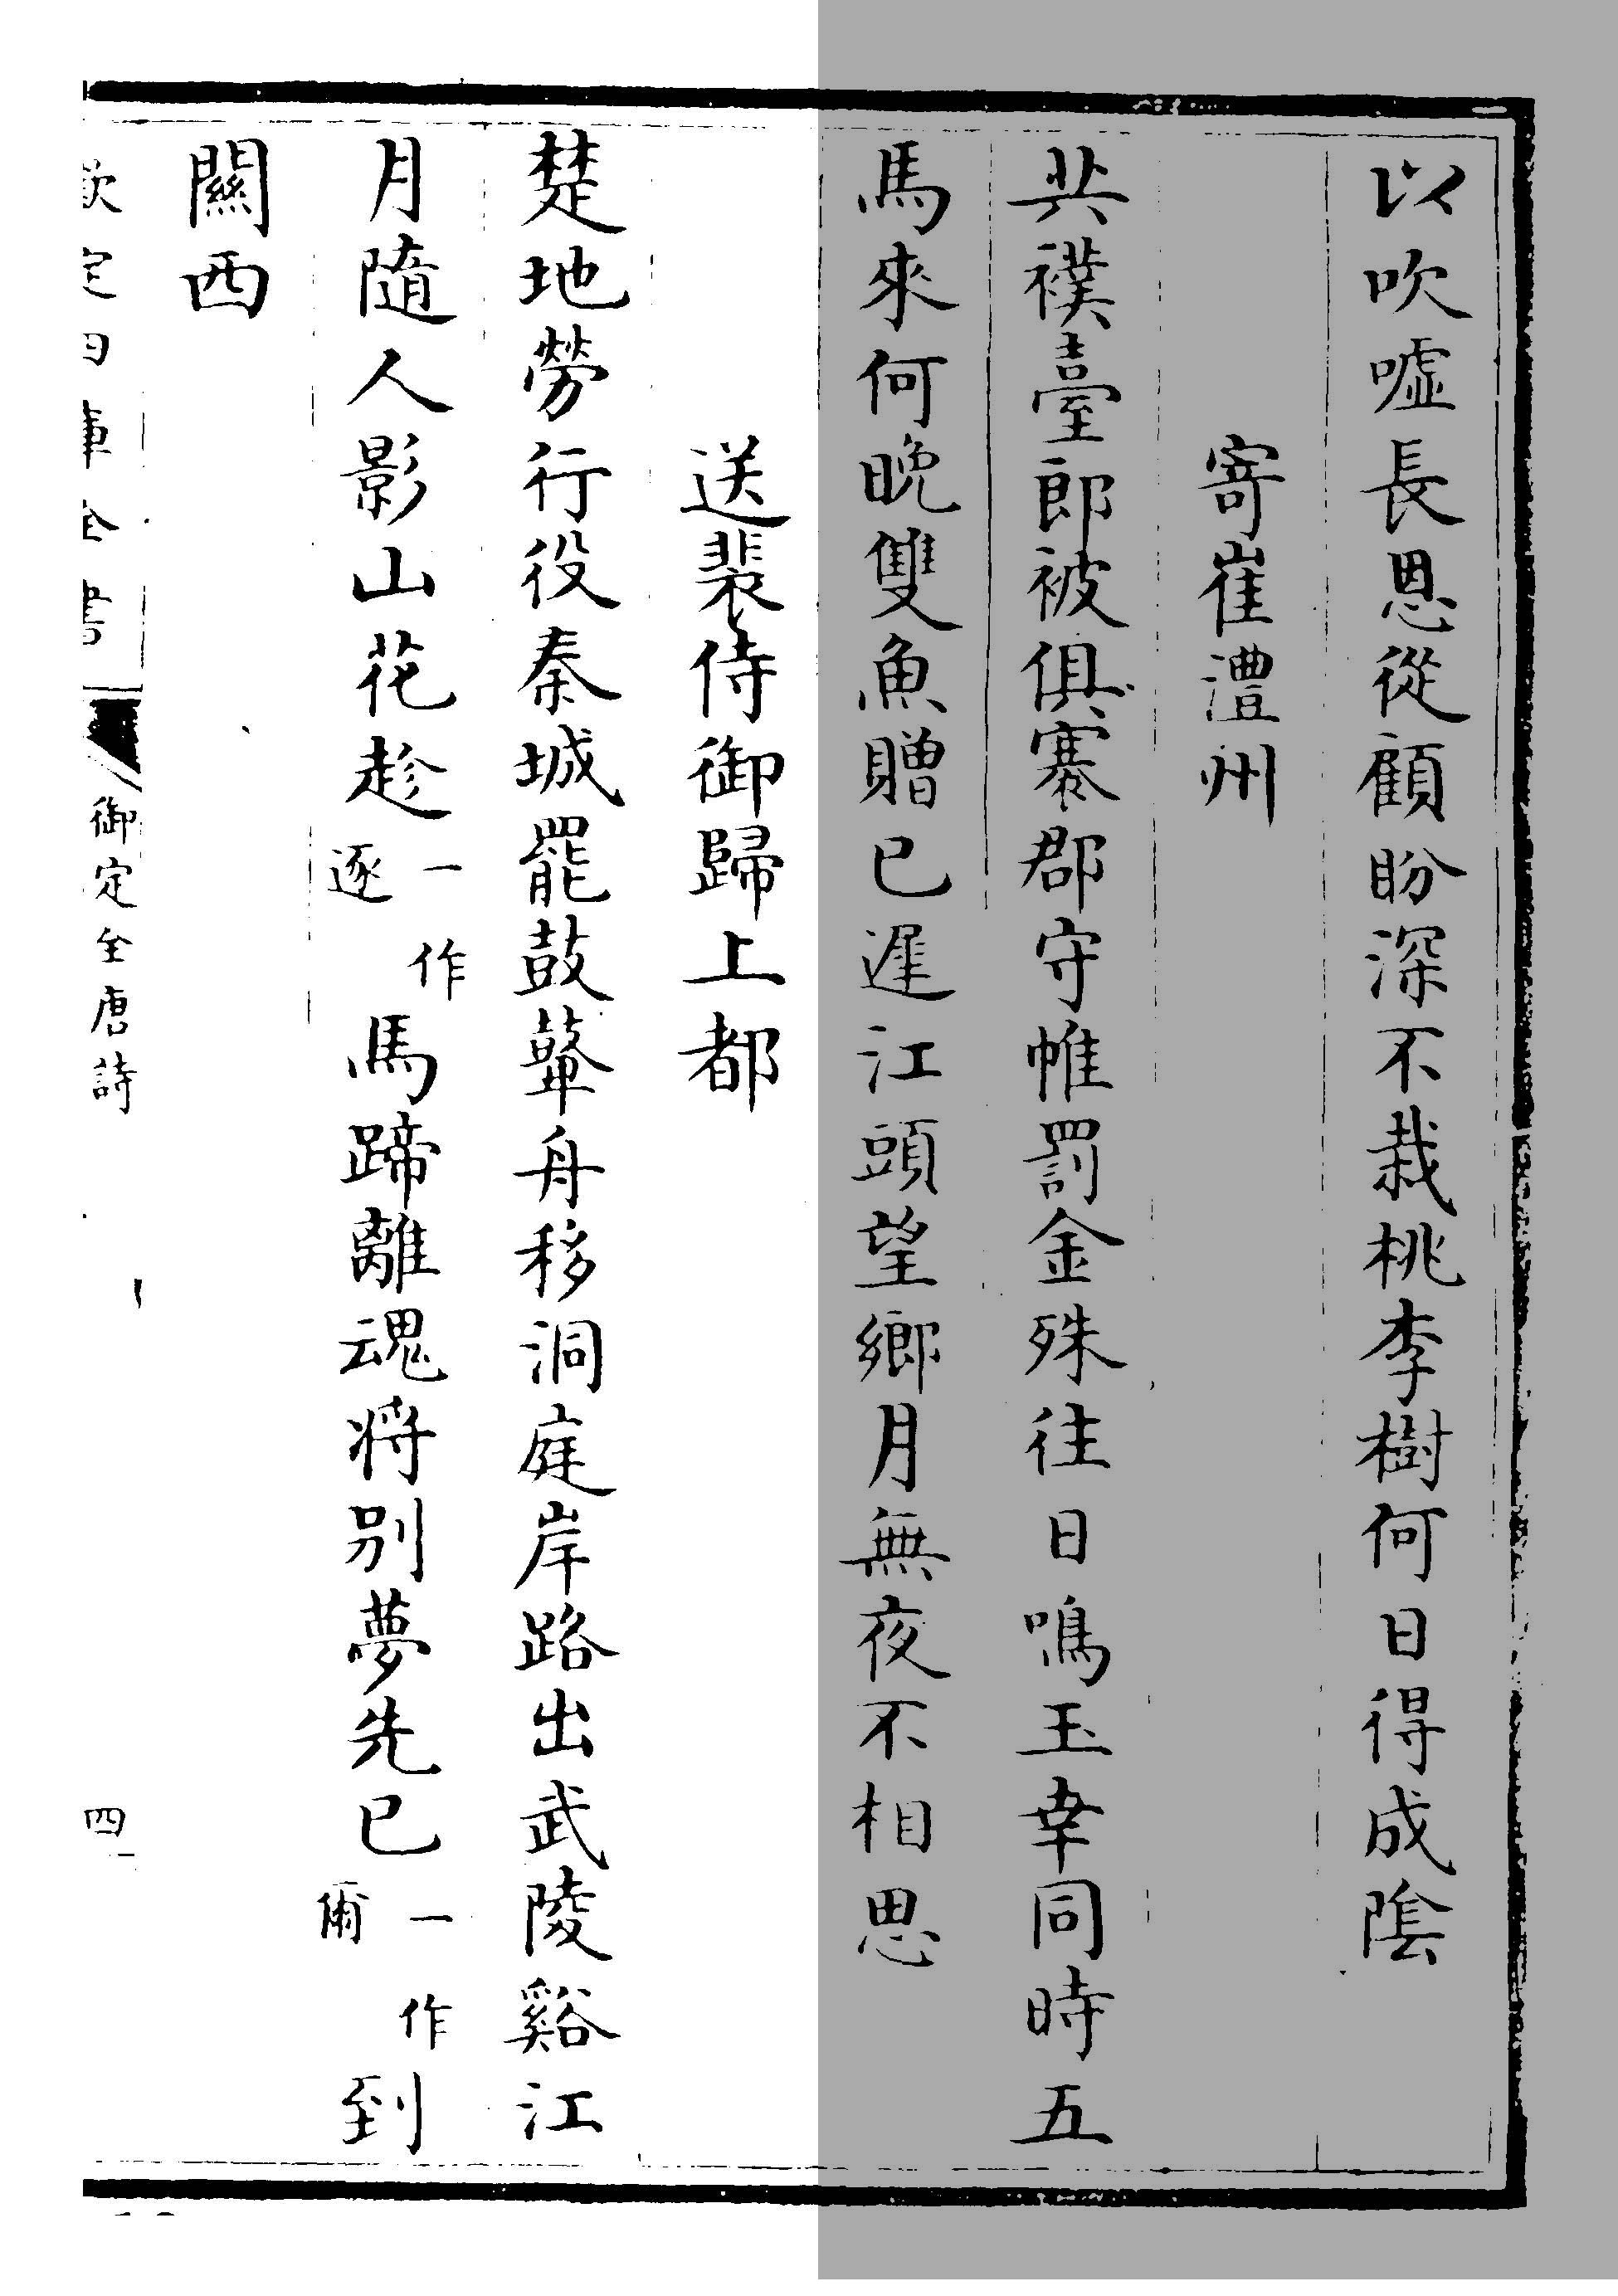 以吹噓長恩從顧盼深不栽桃李樹何日得成陰
寄崔澧州
共襆臺郎被俱褰郡守帷罰金殊往日鳴玉幸同時五
馬來何晚雙魚贈已遲江頭望鄉月無夜不相思
送裴侍御歸上都
楚地勞行役秦城罷鼓鼙舟移洞庭岸路出武陵谿江
月隨人影山花趁一作逐馬蹄離魂將别夢先已一作爾到
關西
欽定四庫全書 御定全唐詩 四